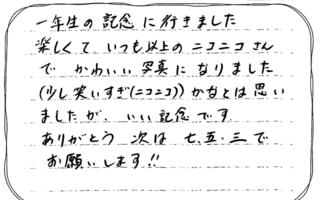 一年生の記念に行きました
楽しくて いつも以上のニコニコさん
で かわいい写真になりました
(少し笑いすぎ(ニコニコ))かなとは思い
ましたが、いい記念です
ありがとう 次は 七、五・三で
お願いします!!